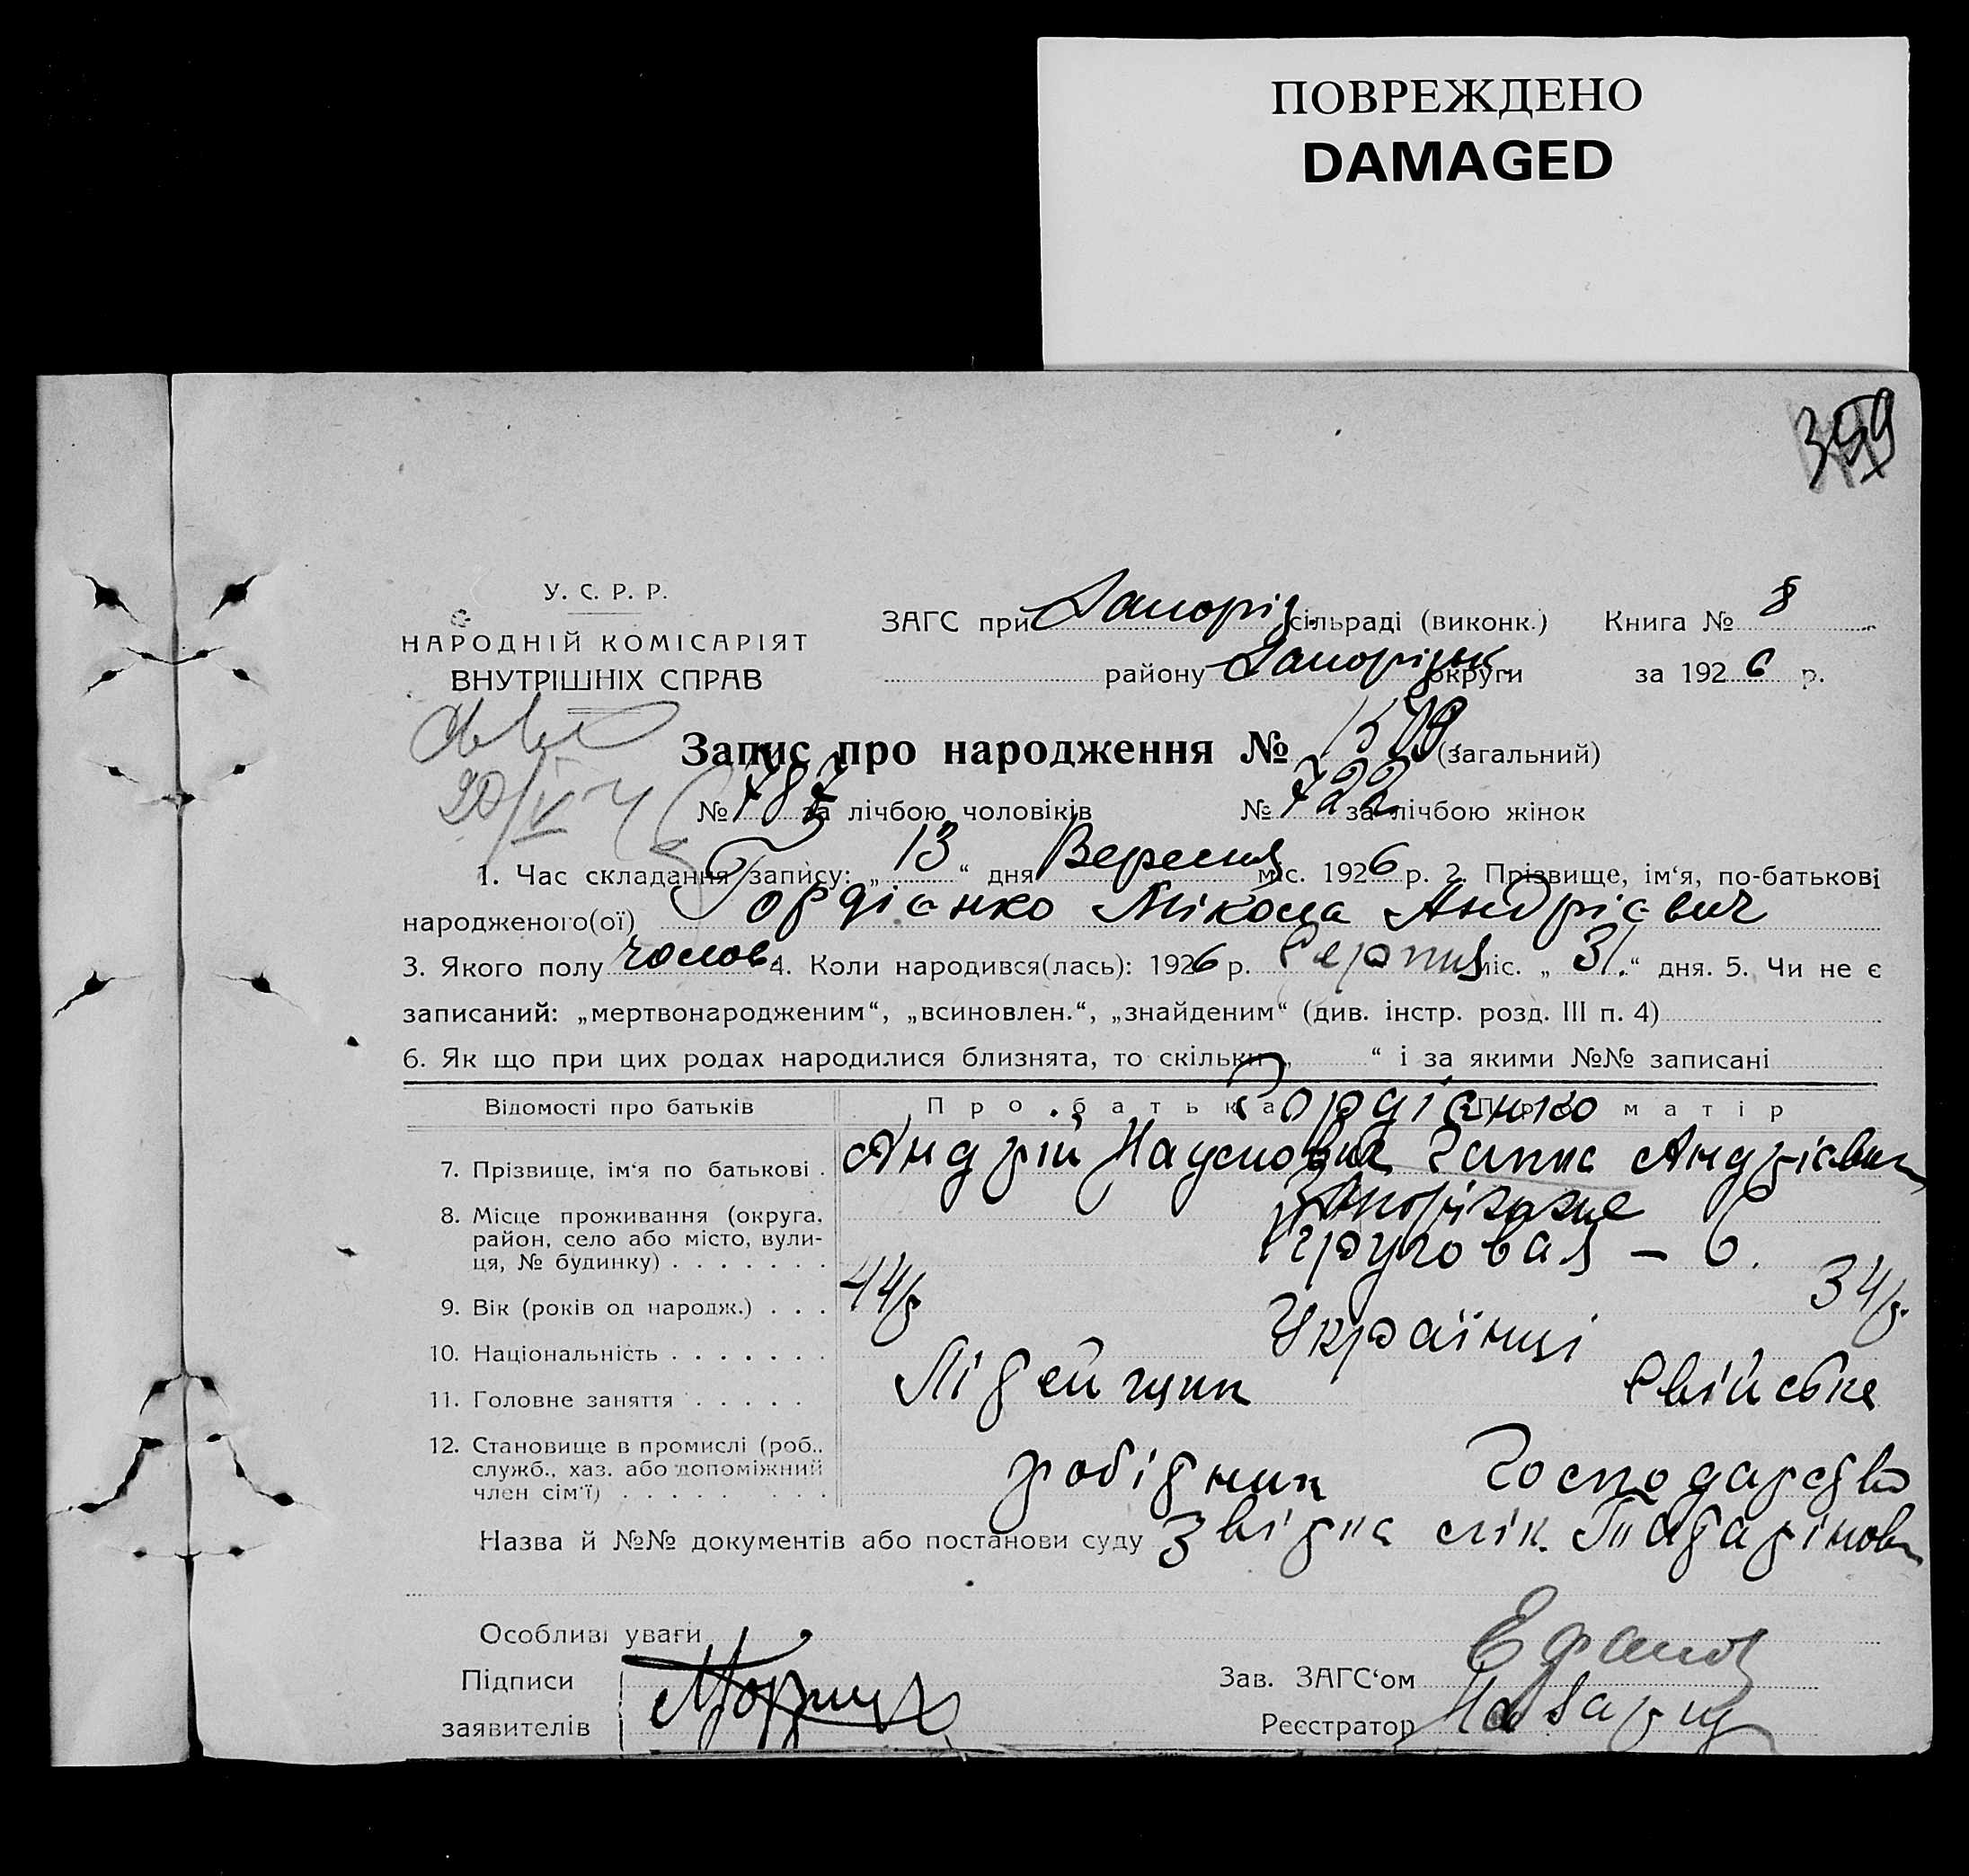 ПОВРЕЖДЕНО
DAMAGED
399
У. С. Р. Р.
НАРОДНІЙ КОМІСАРІЯТ
ВНУТРІШНІХ СПРАВ
ЗАГС при Запоріз. сільраді (виконк.) Книга № 8
району Запорізьк. округи за 1926 р.
Запис про народження № (загальний)
№ 787 за лічбою чоловіків № 722 за лічбою жінок
1. Час складання запису: „13“ дня Вересня міс. 1926 р. 2. Прізвище, ім‘я, по-батькові
народженого(ої) Гордієнко Мікола Андрієвич
3. Якого полу чолов. 4. Коли народився(лась): 1926 р. Серпня міс. „31.“ дня. 5. Чи не є
записаний: „мертвонародженим“, „всиновлен.“, „знайденим“ (див. інстр. розд. III п. 4)
6. Як що при цих родах народилися близнята, то скільки „ “ і за якими №№ записані
Відомості про батьків Про батька Про матір
Гордієнко
7. Прізвище, ім‘я по батькові . Андрій Наумович Ганна Андрієвн
8. Місце проживання (округа, район, село або місто, вулиця, № будинку) . . . . . . . Запоріжжє
Круговая – 6.
9. Вік (років од народж.) . . . 44р 34р.
10. Національність . . . . . . . Українці
11. Головне заняття . . . . . Лівейщик Свійське
12. Становище в промислі (роб., служб., хаз. або допоміжний член сім‘ї) . . . . . . . . робітник Господарство
Назва й №№ документів або постанови суду Звідка лік.
Особливі уваги
Підписи
заявителів
Зав. ЗАГС‘ом
Реєстратор